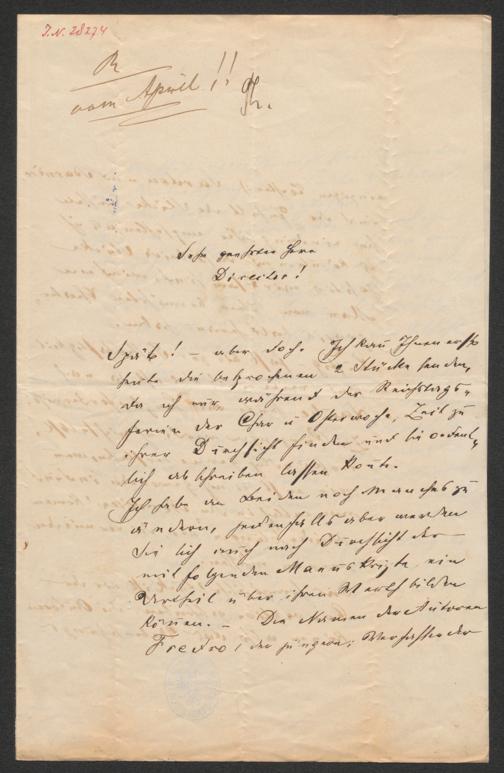 J.N. 28274
R
vom April!!
Sehr geehrter Herr
Director!
Spät! – aber doch. Ich kan Ihnen erst
heute die besprochenen 2 Stücke senden,
da ich nur während der Reichstags-
ferien der Char u Osterwoche, Zeit zu
ihrer Durchsicht finden und sie ordent-
lich abschreiben lassen konte.
Ich habe an Beiden noch Manches zu
ändern, jedenfalls aber werden
Sie sich auch nach Durchsicht der
mitfolgenden Manuskripte ein
Urtheil über ihren Werth bilden
könen. – Die Namen der Autoren
Fredro, der jüngere, Verfasser der